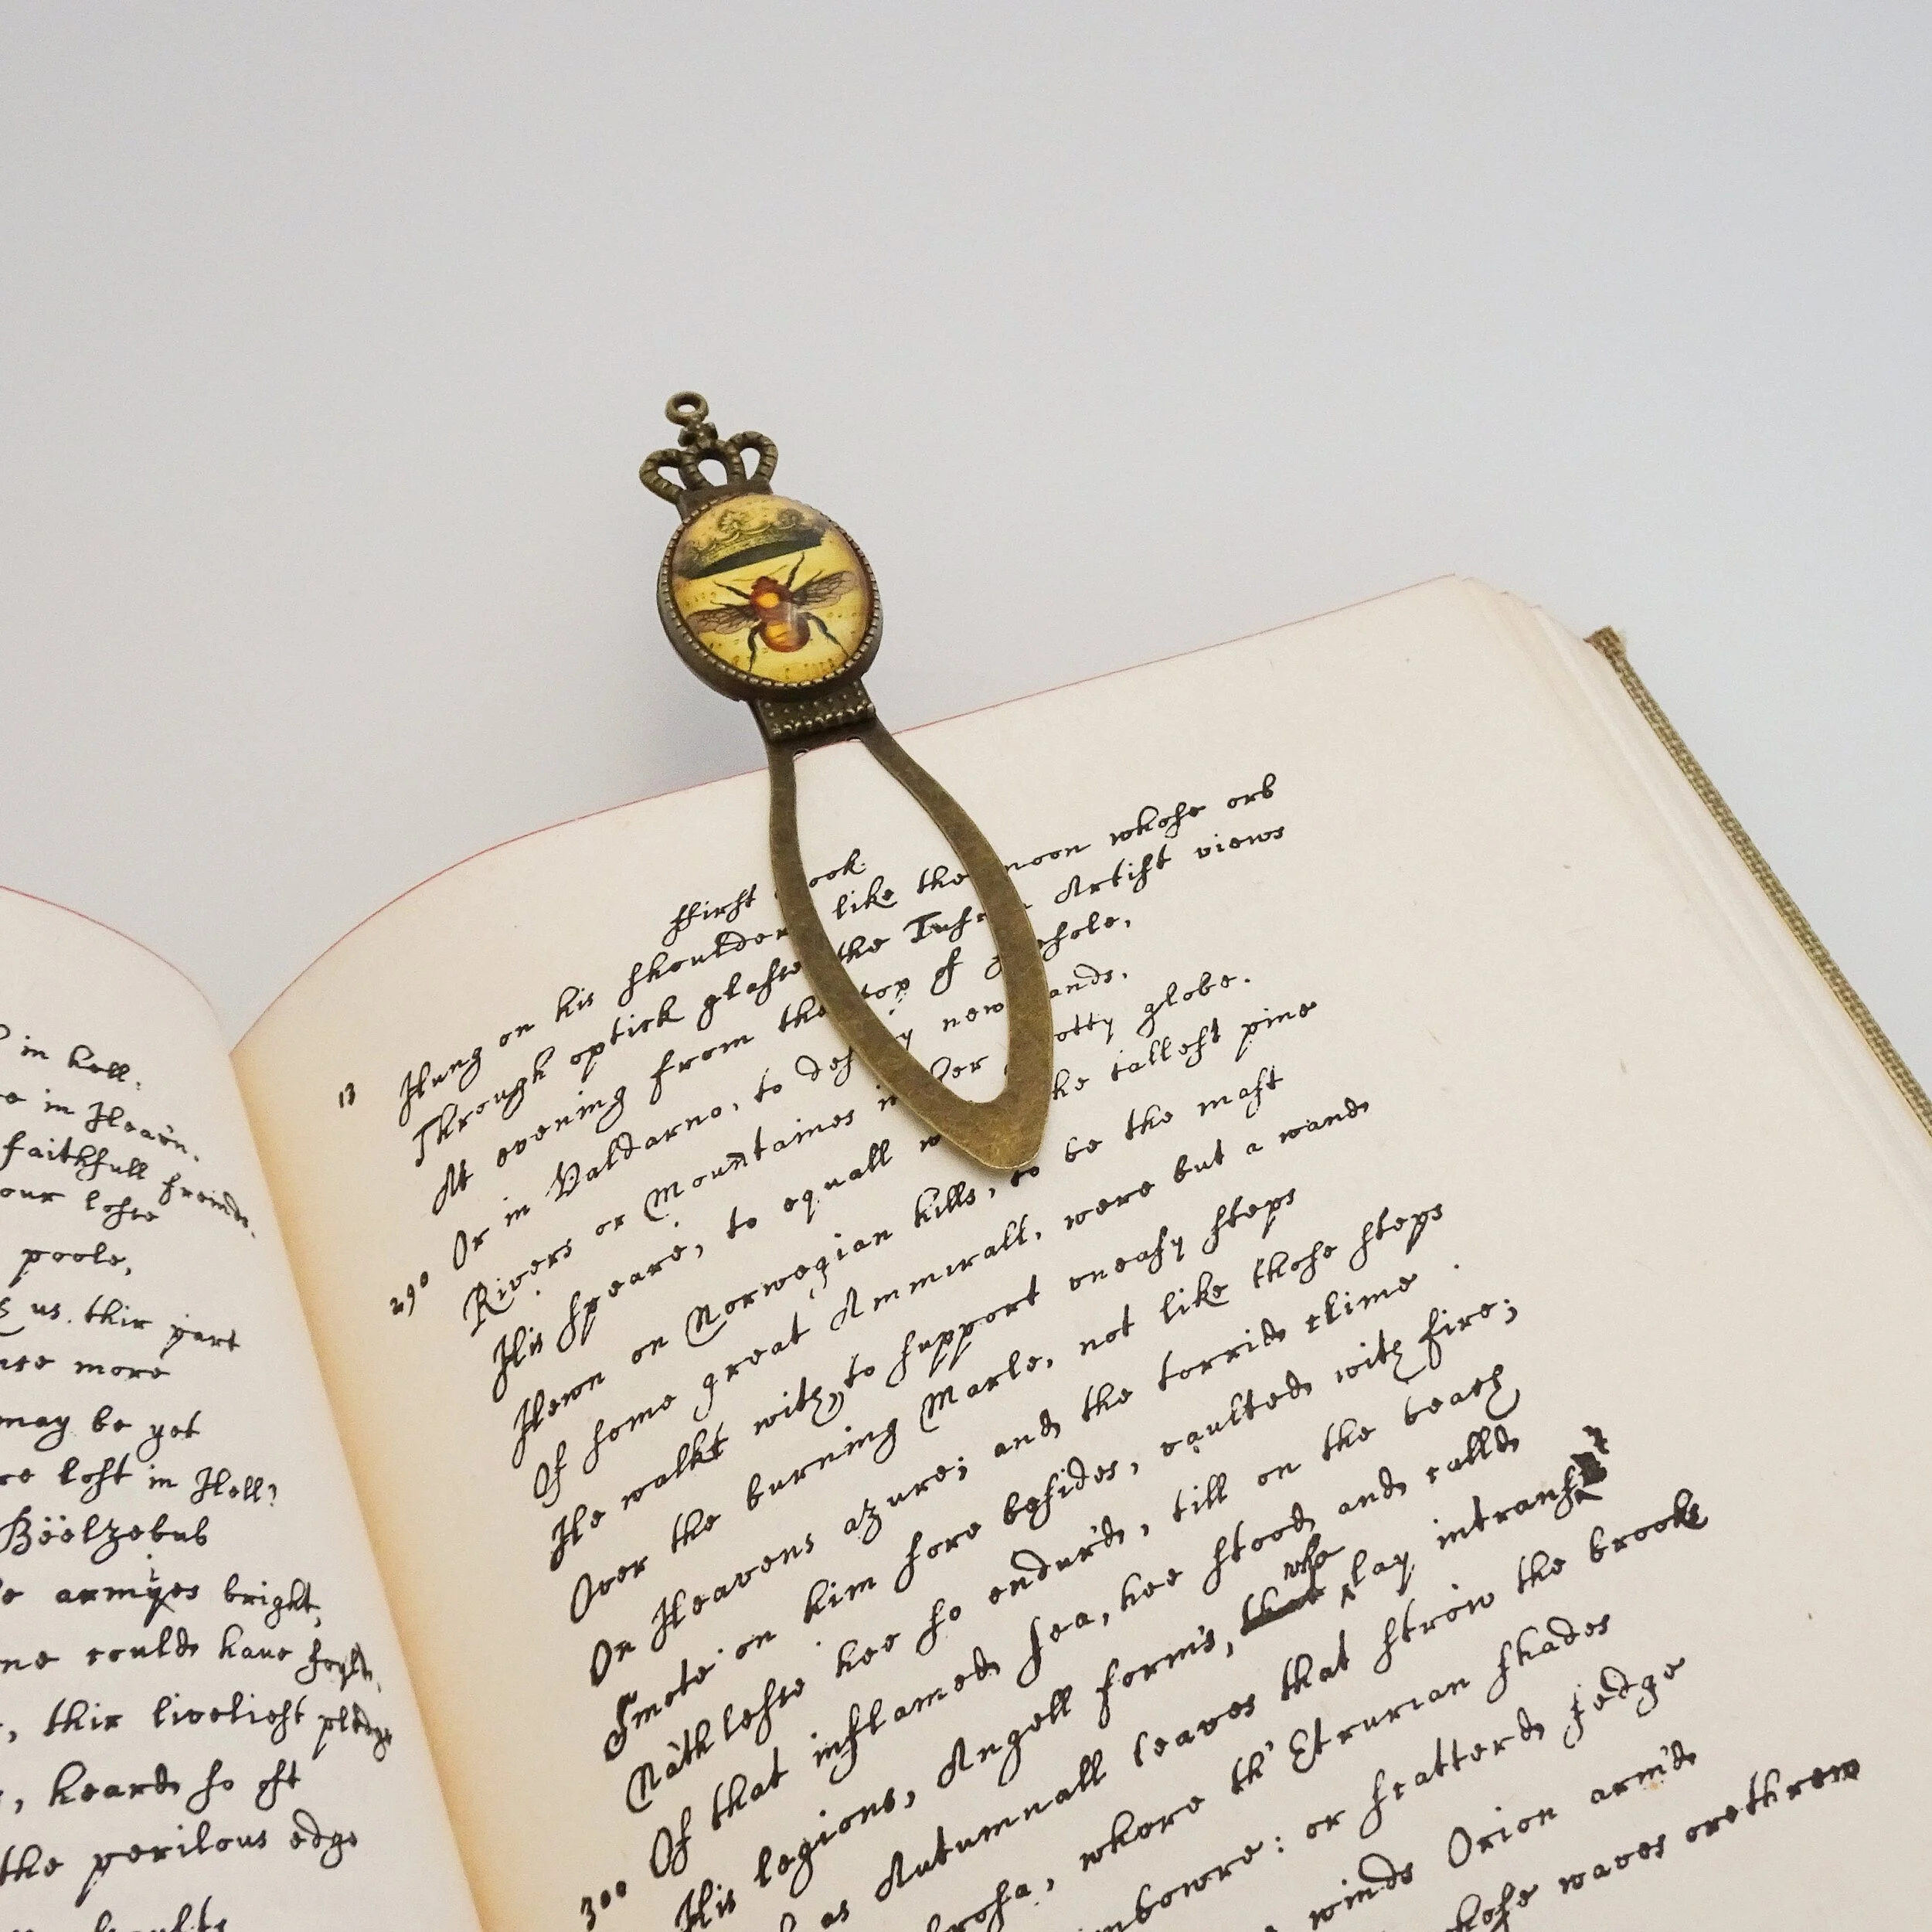 in hell:
in Heav'n.
faithfull freinds,
our losse
poole,
us. thir part
more
may be yet
lost in Hell?
Bëëlzebub
armyes bright,
could have
, thir liveliest pledge
, heard so oft
the perilous edge
ffirst
13 Hung on his shoulders like the moon whose orb
Through optick glasse the Artist views
At evening from the top of
Or in Valdarno, to new
290 Rivers or Mountaines in her globe.
His speare, to equall the tallest pine
Hewn on Norwegian hills, to be the mast
Of some great Ammirall, were but a wand
He walkt with, to support uneasy steps
Over the burning Marle, not like those steps
On Heavens azure; and the torrid clime
Smote on him sore besides, vaulted with fire;
Nathlesse hee so endur'd, till on the beach
Of that inflamed sea, hee stood and call'd
300 His legions, Angell forms, that who lay intranst
as Autumnall leaves that strow the brooks
, where th' Etrurian shades
: or scatterd sedge
winds Orion arm'd
whose waves orethrew